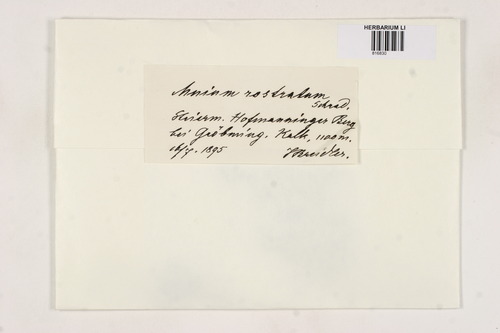 HERBARIUM LI
Mnium rostratum
Schrad.
Steierm. Hofmanninger Berg
bei Gröbming. Kalk, 1100m.
1895 Breidler.